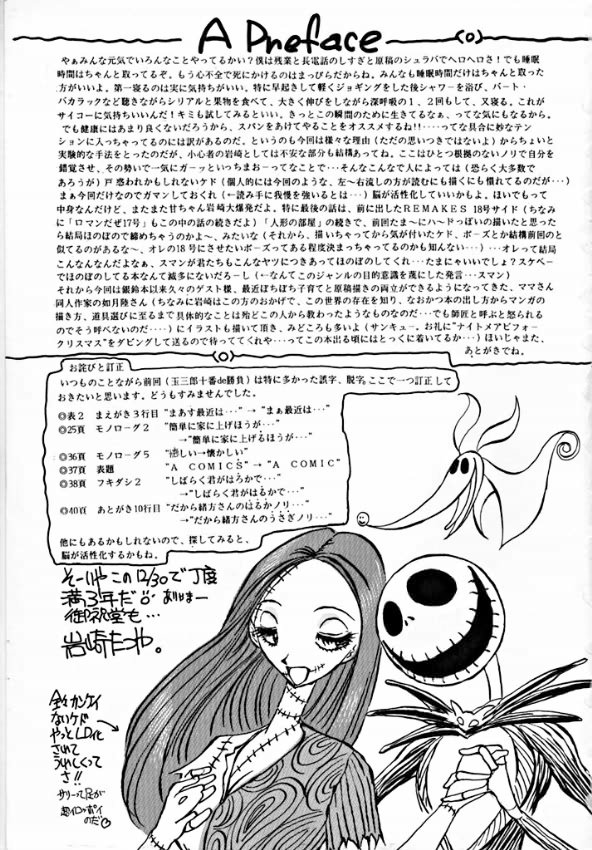 A Preface
やぁみんな元気でいろんなことやってるかい？僕は残業と長電話のしすぎと原稿のシュラバでヘロヘロさ！でも睡眠
時間はちゃんと取ってるぞ。もう心不全で死にかけるのはまっぴらだからね。みんなも睡眠時間だけはちゃんと取った
方がいいよ。第一寝るのは実に気持ちがいい。特に早起きして軽くジョギングをした後シャワーを浴び、バート・
バカラックなど聴きながらシリアルと果物を食べて、大きく伸びをしながら深呼吸の１、２回もして、又寝る。これが
サイコーに気持ちいいんだ！キミも試してみるといい。きっとこの瞬間のために生きてるなぁ、って気にもなるから。
でも健康にはあまり良くないだろうから、スパンをあけてやることをオススメするね!!‥‥って な具合に妙なテン
ションに入っちゃってるのには訳があるのだ。というのも今回は様々な理由（ただの思いつきではないよ）からちょいと
実験的な手法をとったのだが、小心者の岩崎としては不安な部分も結構あってね。ここはひとつ根拠のないノリで自分を
錯覚させ、その勢いで一気にガーッといっちまおーってなことで‥‥そんなこんなで人によっては（恐らく大多数で
あろうが）戸惑われかもしれないケド（個人的には今回のような、左〜右流しの方が読むにも描くにも慣れてるのだが…）
まぁ今回だけなのでガマンしておくれ（←読み手に我慢を強いるとは…）脳が活性化していいかもよ。ほいでもって
中身なんだけど、またまた甘ちゃん岩崎大爆発だよ。特に最後の話は、前に出したＲＥＭＡＫＥＳ 18号サイド（ちなみ
に「ロマンだぜ17号」もこの中の話の続きだよ）「人形の部屋」の続きで、前回たまーにハードっぽいの描いたと思った
ら結局ほのぼので締めちゃうのかよ〜、みたいな（それから、描いちゃってから気が付いたケド、ポーズとか結構前回のと
似てるのがあるな〜 オレの18号にさせたいポーズってある程度決まっちゃってるのかも知んない）…オレって結局
こんなんなんだよなぁ、スマンが君たちもこんなヤツにつきあってほのぼのしてくれ…たまにゃいいでしょ？スケベー
でほのぼのしてる本なんて滅多にないだろーし（←なんてこのジャンルの目的意識を蔑にした発言…スマン）
それから今回は銀鈴本以来久々のゲスト様、最近ぼちぼち子育てと原稿描きの両立ができるようになってきた、ママさん
同人作家の如月陸さん（ちなみに岩崎はこの方のおかげで、この世界の存在を知り、なおかつ本の出し方からマンガの
描き方、道具選びに至るまで具体的なことは殆どこの人から教わったようなものなのだ…でも師匠と呼ぶと怒られる
のでそう呼べないのだ‥‥）にイラストも描いて頂き、みどころも多いよ（サンキュー。お礼に“ナイトメアビフォー
クリスマス”をダビングして送るので待っててくれや…ってこの本出る頃にはとっくに着いてるか…）ほいじゃまた、
あとがきでね。
お詫びと訂正
いつものことながら前回（玉三郎十番de勝負）は特に多かった誤字、脱字。ここで一つ訂正して
おきたいと思います。どうもすみませんでした。
◎表２ まえがき３行目 “まあす最近は…” → “まぁ最近は…”
◎25頁 モノローグ２ “簡単に家に上げほうが…”
→“簡単に家に上げるほうが…”
◎36頁 モノローグ５ “嬉しい→懐かしい”
◎37頁 表題 “A COMICS” → “A COMIC”
◎38頁 フキダシ２ “しばらく君がはろかで…”
→“しばらく君がはるかで…”
◎40頁 あとがき10行目 “だから緒方さんのはるかノリ…”
→“だから緒方さんのうさぎノリ…”
他にもあるかもしれないので、探してみると、
脳が活性化するかもね。
そーいやこの12/30で丁度
満3年だ
御祝堂も…
岩崎たつや。
全々カンケイ
ないケド
やっとLD化
されて
うれしくって
さ!!
サリーって足が
超イロッポイ
のだ♡